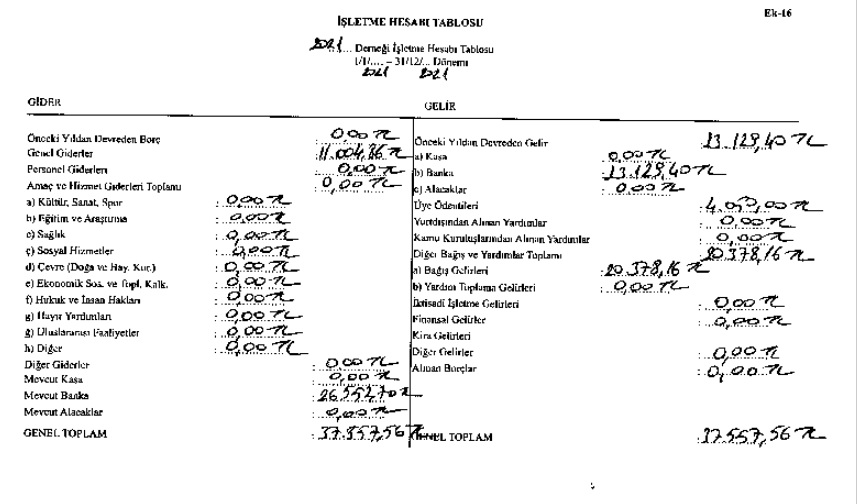 Ek-16
İŞLETME HESABI TABLOSU
2021... Derneği İşletme Hesabı Tablosu
1/1/.... – 31/12/... Dönemi
2021 2021
GİDER
GELİR
Önceki Yıldan Devreden Borç : 0,00 TL
Genel Giderler : 11.004,86 TL
Personel Giderleri : 0,00 TL
Amaç ve Hizmet Giderleri Toplamı : 0,00 TL
a) Kültür, Sanat, Spor : 0,00 TL
b) Eğitim ve Araştırma : 0,00 TL
c) Sağlık : 0,00 TL
ç) Sosyal Hizmetler : 0,00 TL
d) Çevre (Doğa ve Hay. Kor.) : 0,00 TL
e) Ekonomik Sos. ve Topl. Kalk. : 0,00 TL
f) Hukuk ve İnsan Hakları : 0,00 TL
g) Hayır Yardımları : 0,00 TL
ğ) Uluslararası Faaliyetler : 0,00 TL
h) Diğer : 0,00 TL
Diğer Giderler : 0,00 TL
Mevcut Kasa : 0,00 TL
Mevcut Banka : 26.552,70 TL
Mevcut Alacaklar : 0,00 TL
GENEL TOPLAM : 37.557,56 TL
Önceki Yıldan Devreden Gelir : 13.129,40 TL
a) Kasa : 0,00 TL
b) Banka : 13.129,40 TL
c) Alacaklar : 0,00 TL
Üye Ödentileri : 4.050,00 TL
Yurtdışından Alınan Yardımlar : 0,00 TL
Kamu Kuruluşlarından Alınan Yardımlar : 0,00 TL
Diğer Bağış ve Yardımlar Toplamı : 20.378,16 TL
a) Bağış Gelirleri : 20.378,16 TL
b) Yardım Toplama Gelirleri : 0,00 TL
İktisadi İşletme Gelirleri : 0,00 TL
Finansal Gelirler : 0,00 TL
Kira Gelirleri
Diğer Gelirler : 0,00 TL
Alınan Borçlar : 0,00 TL
GENEL TOPLAM : 37.557,56 TL